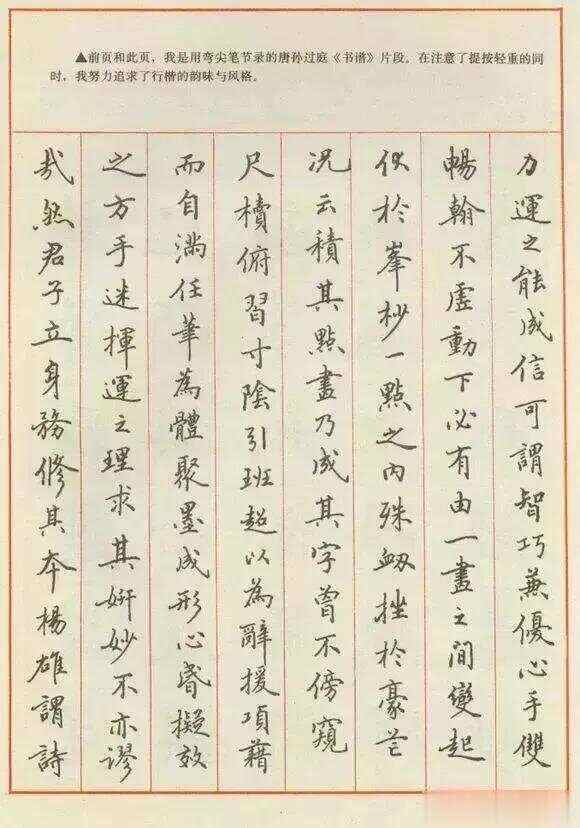 ▲前页和此页，我是用弯尖笔节录的唐孙过庭《书谱》片段。在注意了提按轻重的同
时，我努力追求了行楷的韵味与风格。
力運之能成信可謂智巧兼優心手雙
暢翰不虛動下必有由一畫之間變起
伏於峯杪一點之內殊衂挫於豪芒
况云積其點畫乃成其字曾不傍窺
尺櫝俯習寸陰引班超以為辭援項藉
而自滿任筆為體聚墨成形心昏擬效
之方手迷揮運之理求其妍妙不亦謬
哉然君子立身務修其本楊雄謂詩